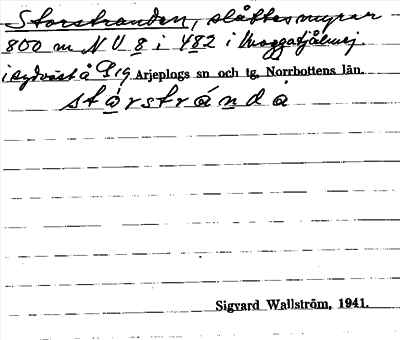 Storstranden, slåttesmyrar
800 m N V 8 i 482 i
i sydväst å Arjeplogs sn och tg, Norrbottens län.
stórstránda
Sigvard Wallström, 1941.